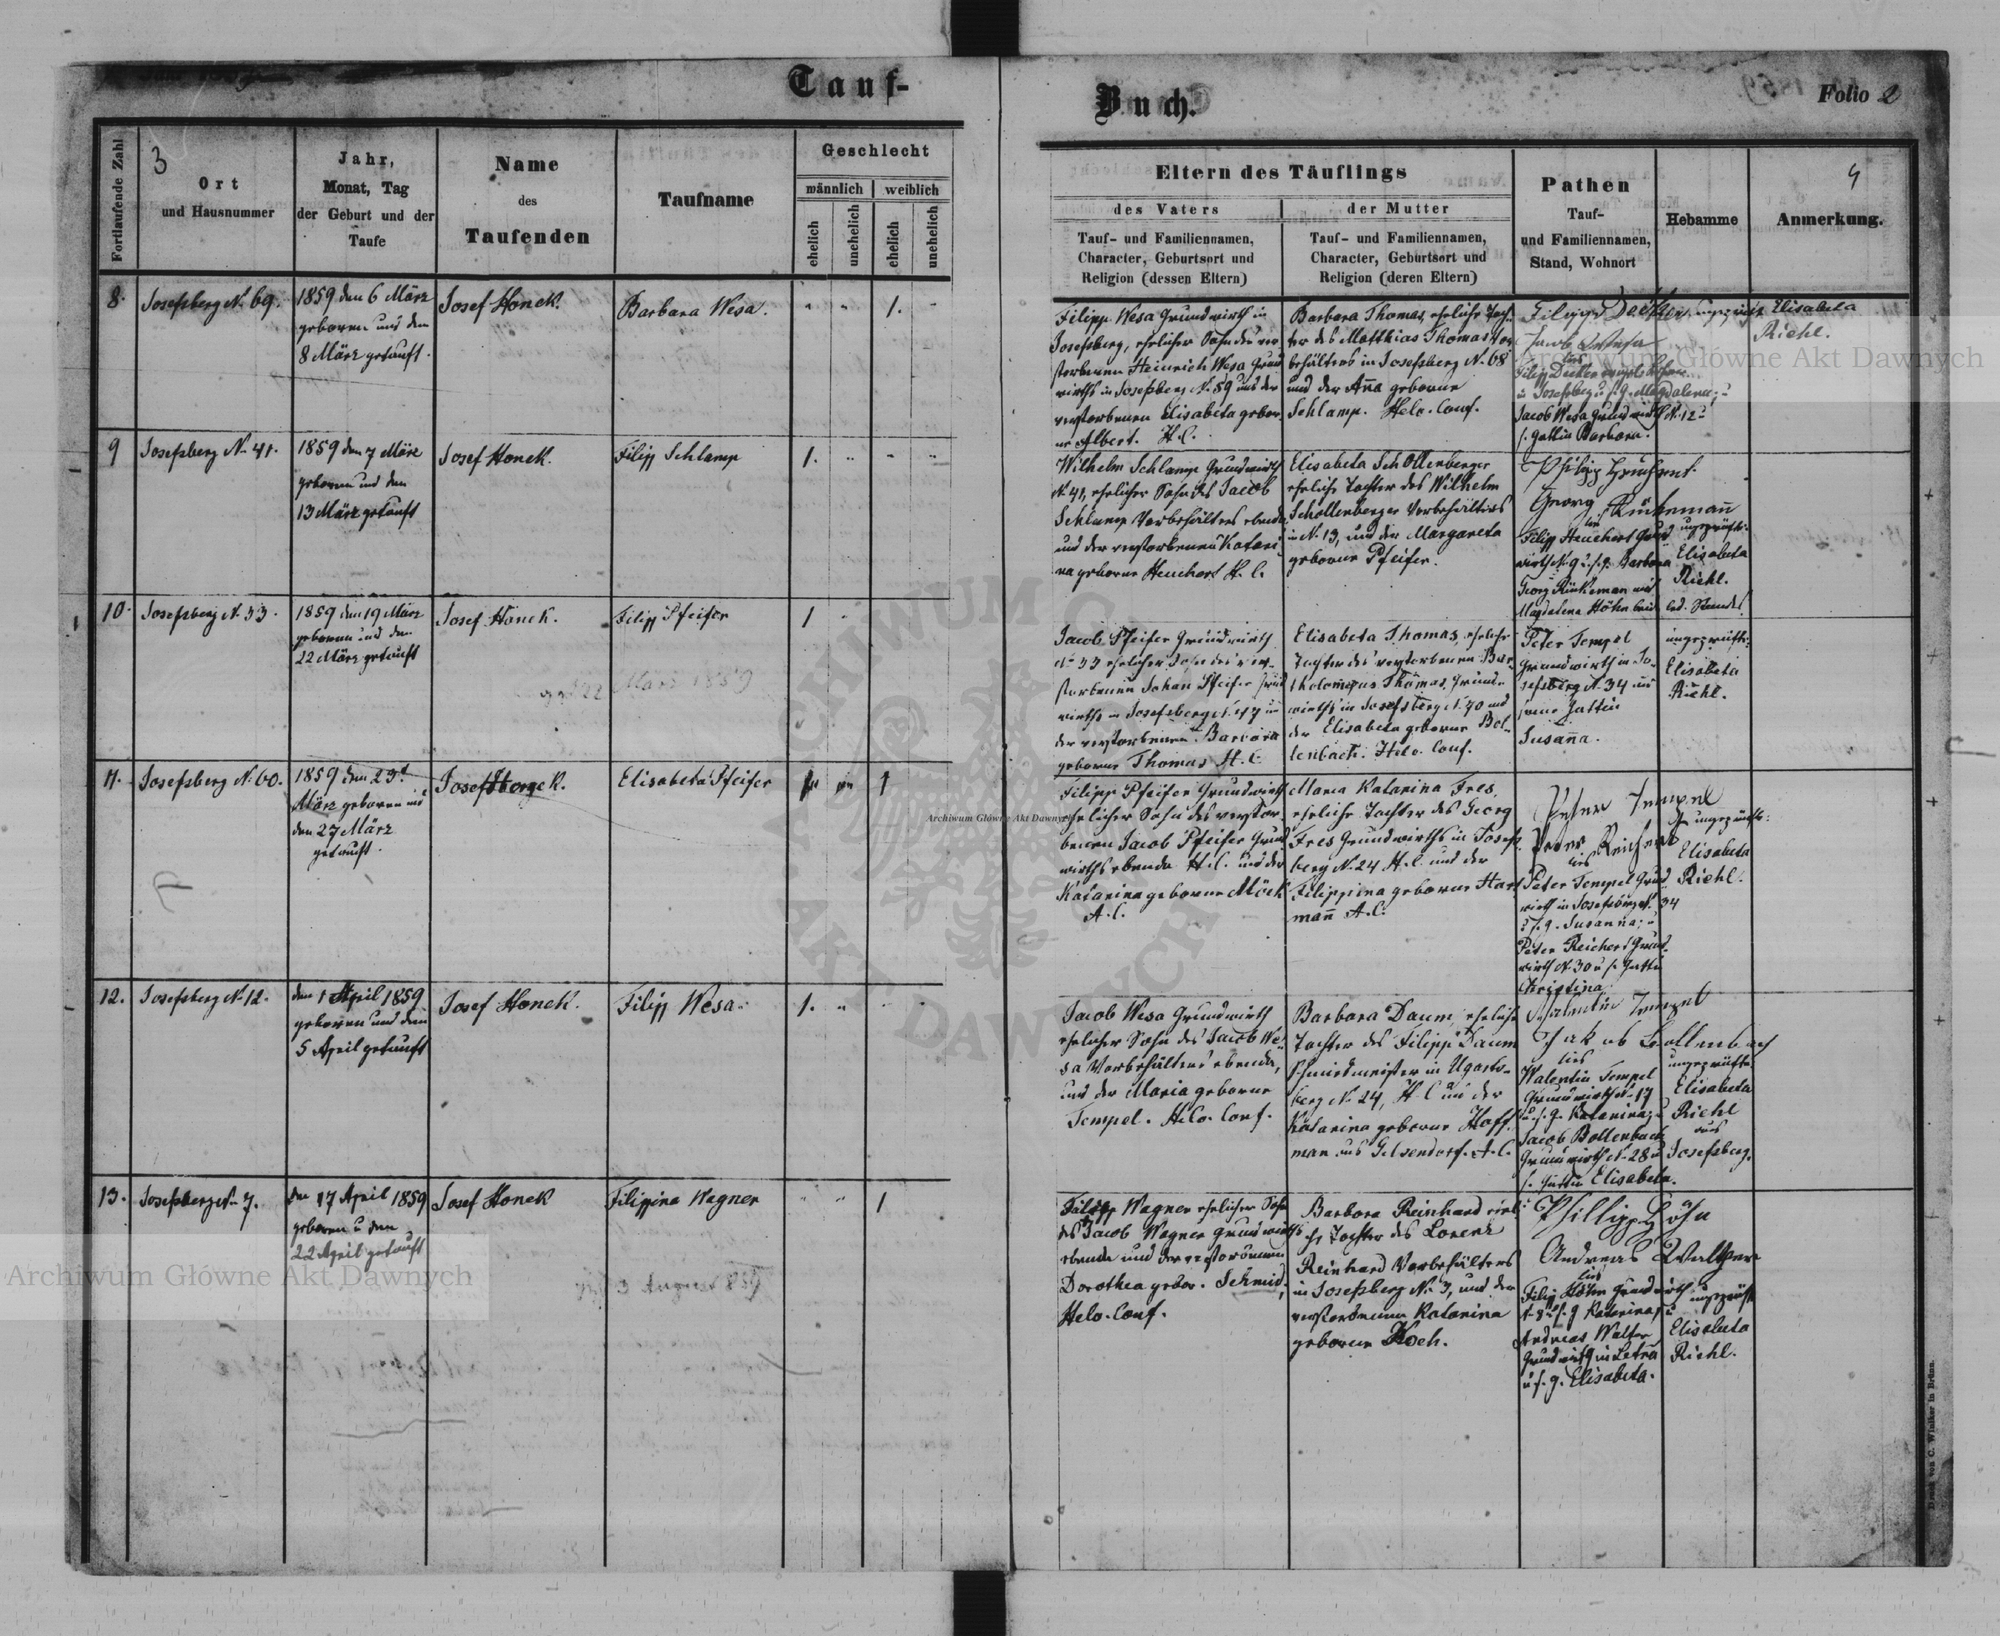 Tauf-
Buch.
Folio 2
3
4
Fortlaufende Zahl
Ort
und Hausnummer
Jahr,
Monat, Tag
der Geburt und der
Taufe
Name
des
Taufenden
Taufname
Geschlecht
männlich
weiblich
ehelich
unehelich
ehelich
unehelich
Eltern des Täuflings
des Vaters
Tauf- und Familiennamen,
Character, Geburtsort und
Religion (dessen Eltern)
der Mutter
Tauf- und Familiennamen,
Character, Geburtsort und
Religion (deren Eltern)
Pathen
Tauf-
und Familiennamen,
Stand, Wohnort
Hebamme
Anmerkung.
8.
Josefsberg N. 69.
1859 den 6 März
geboren und den
8 März getauft.
Josef Honek.
Barbara Wesa.
1.
Filipp Wesa Grundwirth in
Josefsberg, ehelicher Sohn des ver
storbenen Heinrich Wesa Grund
wirths in Josefsberg N. 59 und der
verstorbenen Elisabeta gebor-
ne Albert. H.C.
Barbara Thomas, eheliche Toch-
ter des Matthias Thomas Vor
behälters in Josefsberg N. 68
und der Anna geborne
Schlamp. Helv. Conf.
Jacob Wesa Grundwirth N. 12 u
s. Gattin Barbara.
Elisabeta
Riehl.
9
Josefsberg N. 41.
1859 den 7 März
geboren und den
13 März getauft
Josef Honek.
Filipp Schlamp
1.
Wilhelm Schlamp Grundwirth
N. 41, ehelicher Sohn des Jacob
Schlamp Vorbehälters ebenda
und der verstorbenen Katari
na geborne Heuchert H.C.
Elisabeta Schollenberger
eheliche Tochter des Wilhelm
Schollenberger Vorbehälters
in N. 13, und der Margareta
geborne Pfeifer.
Filipp Heuchert Grund
wirth N. 9 u. s. g. Barbara
Georg Rinkeman und
Magdalena Höhn beide led. Standes
ungeprüfte
Elisabeta
Riehl.
10.
Josefsberg N. 53.
1859 den 19 März
geboren und den
22 März getauft
Josef Honek.
Filipp Pfeifer
1
Jacob Pfeifer Grundwirth
N. 53 ehelicher Sohn des ver-
storbenen Johan Pfeifer Grund
wirths in Josefsberg N. 47 u
der verstorbenen Barbara
geborne Thomas H.C.
Elisabeta Thomas, eheliche
Tochter des verstorbenen Bar-
tholomeus Thomas, Grund-
wirths in Josefsberg N. 70 und
der Elisabeta geborne Bol-
lenbach. Helv. Conf.
Peter Tempel
Grundwirth in Jo-
sefsberg N. 34 und
seine Gattin
Susanna.
ungeprüfte
Elisabeta
Riehl.
11.
Josefsberg N. 60.
1859 den 23t
März geboren und
den 27 März
getauft.
Josef Honek.
Elisabeta Pfeifer
1
Filipp Pfeifer Grundwirth
ehelicher Sohn des verstor
benen Jacob Pfeifer Grund
wirths ebenda H.C. und der
Katarina geborne Möck
A.C.
Maria Katarina Fres,
eheliche Tochter des Georg
Fres Grundwirths in Josefs
berg N. 24 H.C. und der
Filippina geborne Hart
mann A.C.
Peter Tempel
Peter Reichert
Peter Tempel Grund
wirth in Josefsberg N. 34
u s. g. Susanna; u
Peter Reichert Grund-
wirth N. 30 u s. Gattin
Christina
ungeprüfte
Elisabeta
Riehl.
12.
Josefsberg N. 12.
den 1 April 1859
geboren und den
5 April getauft
Josef Honek.
Filipp Wesa
1.
Jacob Wesa Grundwirth
ehelicher Sohn des Jacob We-
sa Vorbehälters ebenda,
und der Maria geborne
Tempel. Helv. Conf.
Barbara Daum, eheliche
Tochter des Filipp Daum
Schmiedmeister in Ugarts-
berg N. 24, H.C. und der
Katarina geborne Hoff-
man aus Gelsendorf. A.C.
Valentin Tempel
Jakob Bollenbach
Valentin Tempel
Grundwirth N. 17
u. s. g. Katarina; u
Jacob Bollenbach
Grundwirth N. 28 u
s. Gattin Elisabeta.
ungeprüfte
Elisabeta
Riehl
aus
Josefsberg.
13.
Josefsberg N. 7.
den 17 April 1859
geboren u den
22 April getauft
Josef Honek
Filippina Wagner
1
Filipp Wagner ehelicher Sohn
des Jacob Wagner Grundwirths
ebenda und der verstorbenen
Dorothea gebor. Schmid,
Helv. Conf.
Barbara Reinhard eheli-
che Tochter des Lorenz
Reinhard Vorbehälters
in Josefsberg N. 3, und der
verstorbenen Katarina
geborne Koch.
Phillipp Höhn
Andreas Walther
Filipp Höhn Grundwirth
N. 8 u. s. g Katarina; u
Andreas Walter
Grundwirth in Letnia
u s. g. Elisabeta.
ungeprüfte
Elisabeta
Riehl.
Druck von C. Winiker in Brünn.
Archiwum Główne Akt Dawnych
Archiwum Główne Akt Dawnych
Archiwum Główne Akt Dawnych